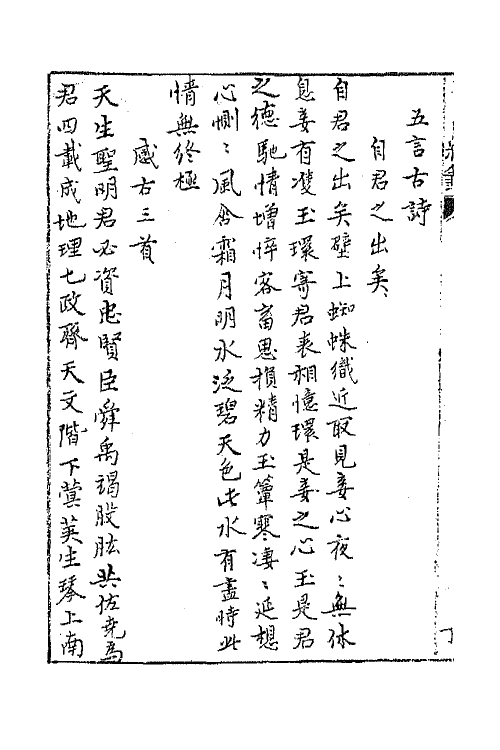 五言古詩
自君之出矣
自君之出矣壁上蜘蛛織近取見妾心夜〻無休
息妾有雙玉環寄君表相憶環是妾之心玉是君
之德馳情增悴容畜思損精力玉簟寒凄〻延想
心惻〻風含霜月明水泛碧天色此水有盡時此
情無終極
感古三首
天生聖明君必資忠賢臣舜禹竭股肱共佐堯爲
君四載成地理七政齊天文階下蓂莢生琴上南